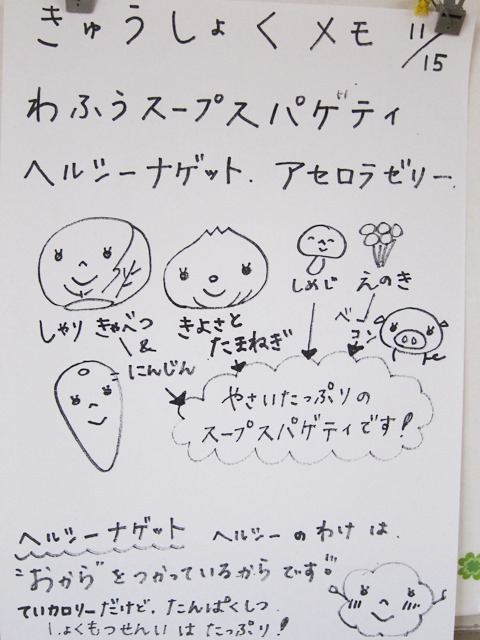 きゅうしょくメモ 11/15
わふうスープスパゲティ
ヘルシーナゲット. アセロラゼリー.
しめじ えのき
しゃり きゃべつ きよさと たまねぎ ベーコン
&
にんじん
やさいたっぷりの
スープスパゲティです!
ヘルシーナゲット ヘルシーのわけは.
"おから"をつかっているからです!!
ていカロリーだけど、たんぱくしつ
しょくもつせんいはたっぷり!